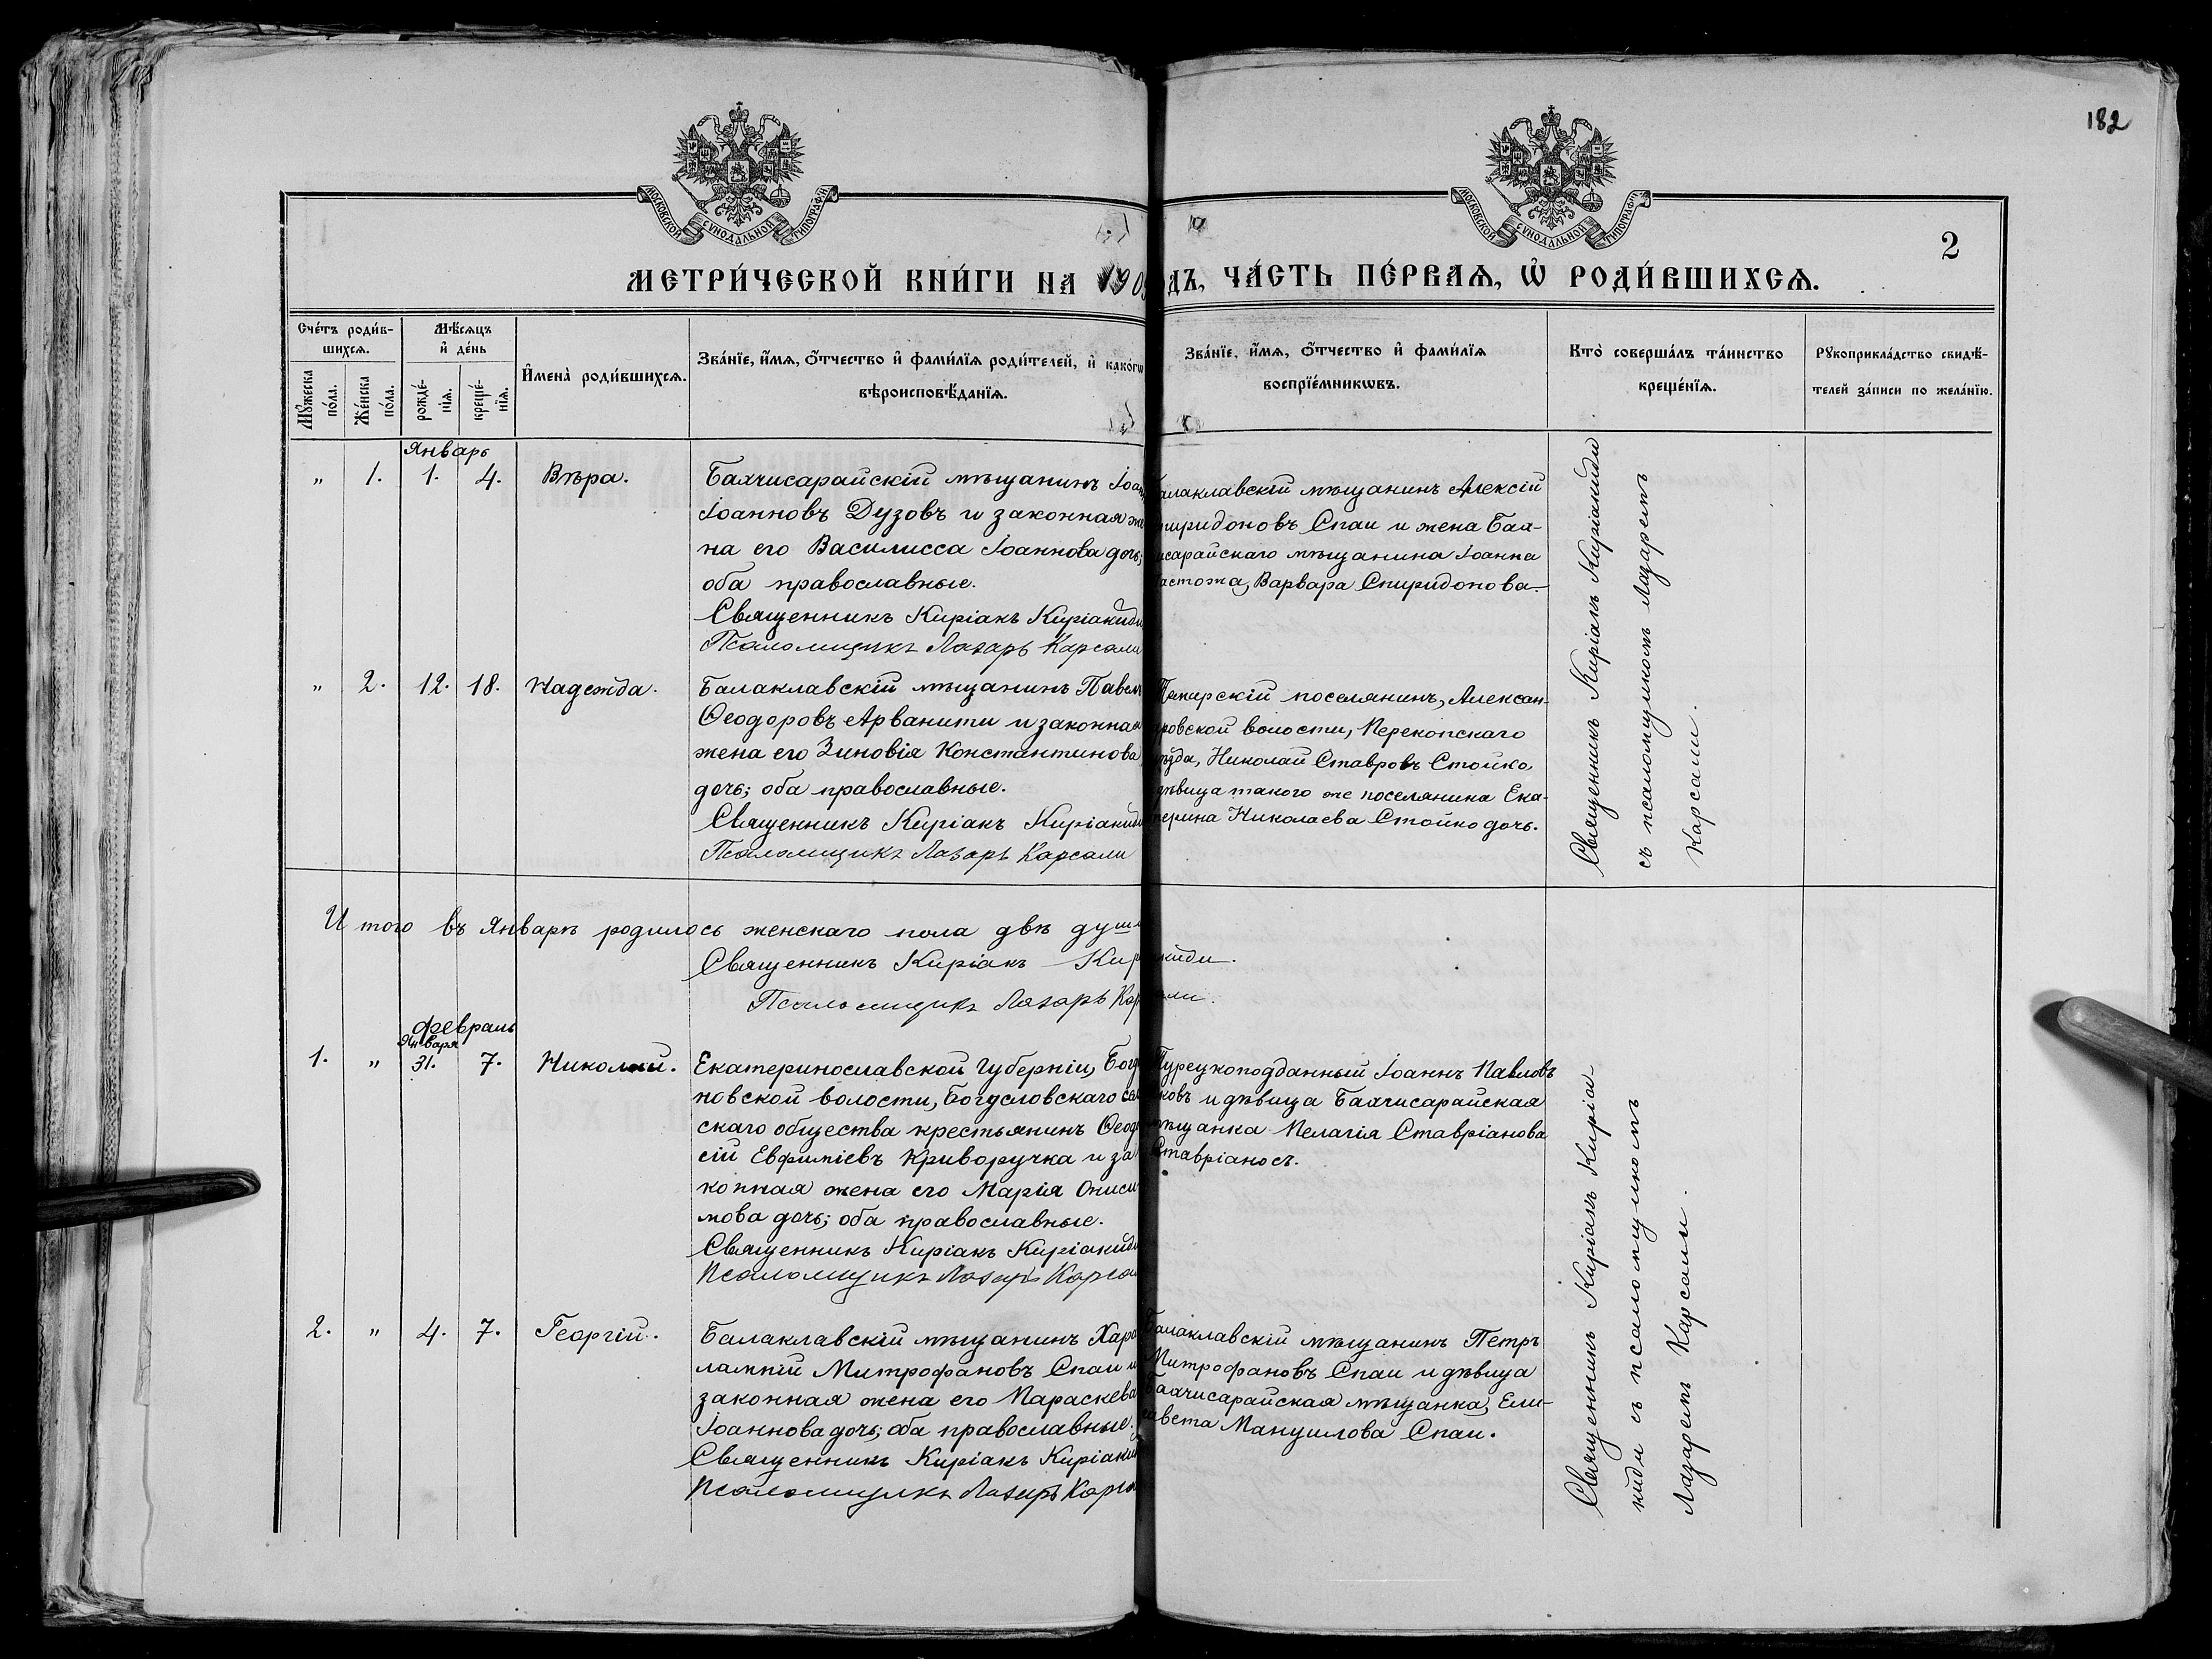 182
МОСКОВСКОЙ СѴНОДАЛЬНОЙ ТИПОГРАФІИ
МОСКОВСКОЙ СѴНОДАЛЬНОЙ ТИПОГРАФІИ
2
МЕТРИ́ЧЕСКОЙ КНИ́ГИ НА 190 ДЪ, ЧА́СТЬ ПЕ́РВАѦ, Ѡ҆ РОДИ́ВШИХСѦ.
Сче́тъ роди́в-
шихсѧ.
Мѣ́сѧцъ
и҆ де́нь
И҆мена̀ роди́вшихсѧ.
Зва́нїе, и҆́мѧ, ѻ҆́тчество и҆ фами́лїѧ роди́телей, и҆ како́гѡ
вѣроисповѣ́данїѧ.
Зва́нїе, и҆́мѧ, ѻ҆́тчество и҆ фами́лїѧ
воспрїе́мникѡвъ.
Кто̀ соверша́лъ та́инство
креще́нїѧ.
Рꙋкоприкла́дство свидѣ́-
телей за́писи по жела́нїю.
Мꙋ́жеска
по́ла.
Же́нска
по́ла.
рожде́-
нїѧ.
креще́-
нїѧ.
Январь
" 1. 1. 4. Вѣра.
Бахчисарайскій мѣщанинъ Іоан
Іоанновъ Дузовъ и законная же
на его Василисса Іоаннова дочь;
оба православные.
Священникъ Киріакъ Киріакиди
Псаломщикъ Лазарь Карсали
алаклавскій мѣщанинъ Алексій
пиридоновъ Спаи и жена Бах-
исарайскаго мѣщанина Іоанна
астожа, Варвара Спиридонова.
Священникъ Киріакъ Киріакиди
съ псаломщикомъ Лазаремъ
Карсали.
" 2. 12. 18. Надежда.
Балаклавскій мѣщанинъ Павелъ
Ѳеодоровъ Арванити и законная
жена его Зиновія Константинова
дочь; оба православные.
Священникъ Киріакъ Киріакиди
Псаломщикъ Лазарь Карсали
поселянинъ, Алексан-
ровской волости, Перекопскаго
ѣзда, Николай Ставровъ Стойко
дѣвица такого же поселянина Ека-
терина Николаева Стойко дочь.
И того въ Январѣ родилось женскаго пола двѣ души
Священникъ Киріакъ Кир акиди.
Псаломщикъ Лазарь Кар сали.
Февраль
Января
1. " 31. 7. Николай.
Екатеринославской губерніи, Богд
новской волости, Богусловскаго сель
скаго общества крестьянинъ Ѳеодо
сій Евфиміевъ Криворучка и за
конная жена его Марія Ониси
мова дочь; оба православные.
Священникъ Киріакъ Киріакиди
Псаломщикъ Лазарь Карса
Турецкоподданный Іоаннъ Павловъ
ковъ и дѣвица Бахчисарайская
мѣщанка Пелагія Ставріанова
Ставріаносъ.
Священникъ Киріакъ Киріа-
киди съ псаломщикомъ
Лазаремъ Карсали.
2. " 4. 7. Георгій.
Балаклавскій мѣщанинъ Хара
лампій Митрофановъ Спаи и
законная жена его Параскева
Іоаннова дочь; оба православные.
Священникъ Киріакъ Киріакид
Псаломщикъ Лазарь Карса
Балаклавскій мѣщанинъ Петръ
Митрофановъ Спаи и дѣвица
Бахчисарайская мѣщанка, Ели-
савета Мануилова Спаи.